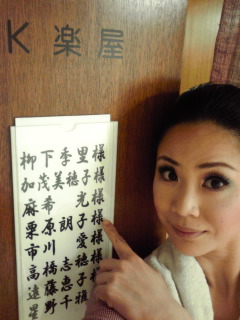 K 楽屋
柳下季里様
加茂美穂子様
麻希光様
栗原朗子様
市川愛様
高橋志穂様
遠藤恵子様
星野千雅様